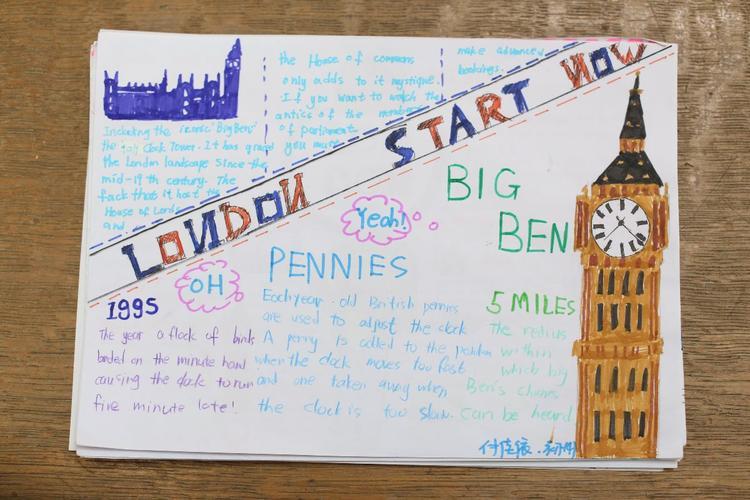 Including the iconic 'Big Ben'
the Clock Tower. It has graced
the London landscape since the
mid-19th century. The
fack that it host the
House of Lords
and
the House of commons
only adds to it mystique.
If you want to watch the
antics of the members
of parliament
you must
make advanced
bookings.
LONDON START NOW
BIG
BEN
Yeah!
OH
1995
The year a flock of birds
landed on the minute hand
causing the clock to run
five minute late!
PENNIES
Each year old British pennies
are used to adjust the clock
A penny is added to the pendulum
when the clock moves too fast
and one taken away when
the clock is too slow.
5 MILES
The redius
within
which big
Ben's chimes
can be heard